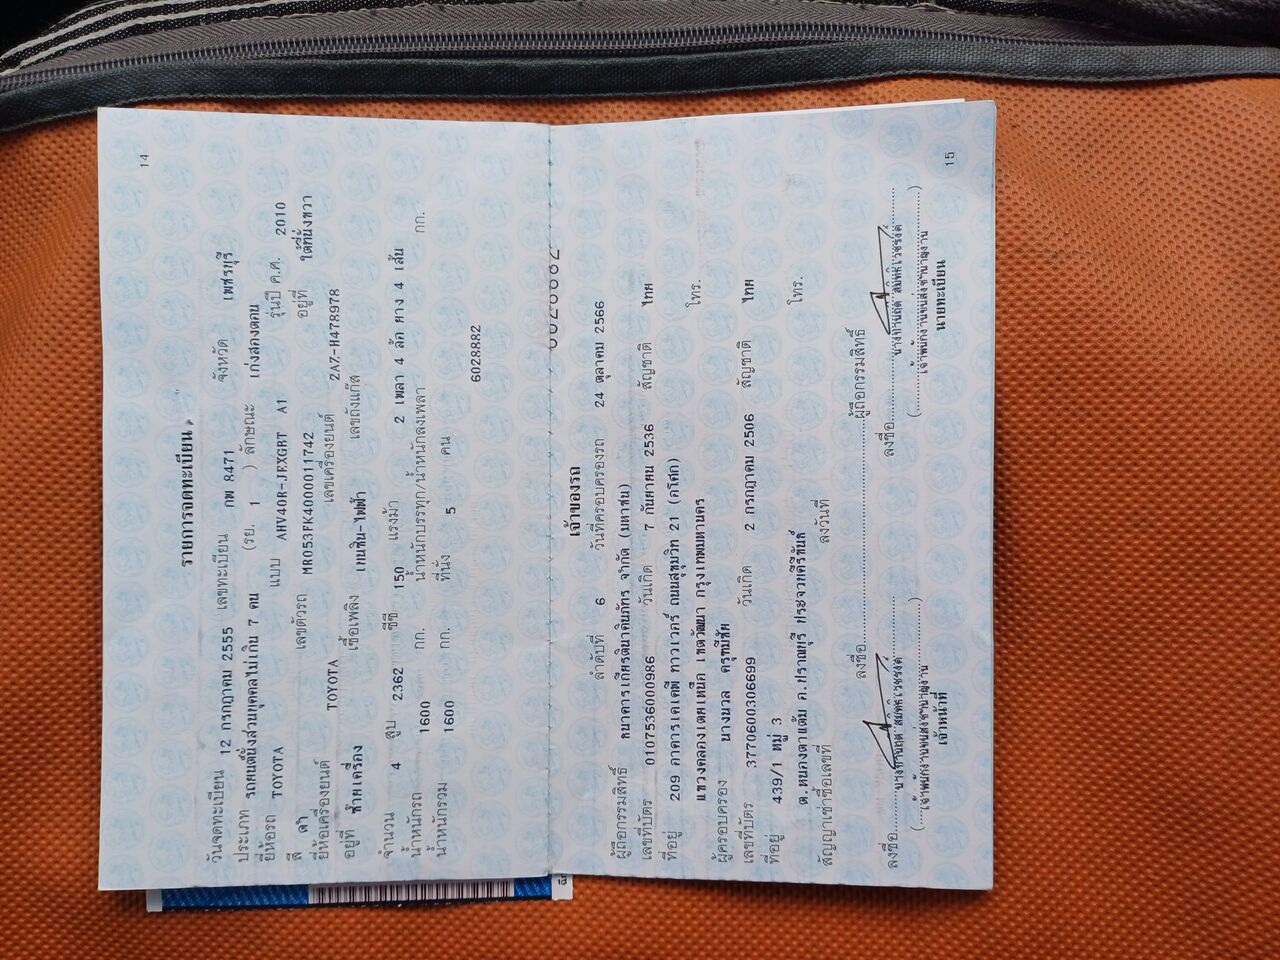 14
รายการจดทะเบียน
วันจดทะเบียน 12 กรกฎาคม 2555 เลขทะเบียน กพ 8471 จังหวัด เพชรบุรี
ประเภท รถยนต์นั่งส่วนบุคคลไม่เกิน 7 คน (รย. 1 ) ลักษณะ เก๋งสองตอน
ยี่ห้อรถ TOYOTA แบบ AHV40R-JEXGBT A1 รุ่นปี ค.ศ. 2010
สี ดำ เลขตัวรถ MR053FK4000011742 อยู่ที่ ใต้ที่นั่งขวา
ยี่ห้อเครื่องยนต์ TOYOTA เลขเครื่องยนต์ 2AZ-H478978
อยู่ที่ ซ้ายเครื่อง เชื้อเพลิง เบนซิน-ไฟฟ้า เลขถังแก๊ส
จำนวน 4 สูบ 2362 ซีซี 150 แรงม้า 2 เพลา 4 ล้อ ยาง 4 เส้น
น้ำหนักรถ 1600 กก. น้ำหนักบรรทุก/น้ำหนักลงเพลา กก.
น้ำหนักรวม 1600 กก. ที่นั่ง 5 คน
6028882
เจ้าของรถ
ลำดับที่ 6 วันที่ครอบครองรถ 24 ตุลาคม 2566
ผู้ถือกรรมสิทธิ์ ธนาคารเกียรตินาคินภัทร จำกัด (มหาชน)
เลขที่บัตร 0107536000986 วันเกิด 7 กันยายน 2536 สัญชาติ ไทย
ที่อยู่ 209 อาคารเคเคพี ทาวเวอร์ ถนนสุขุมวิท 21 (อโศก)
แขวงคลองเตยเหนือ เขตวัฒนา กรุงเทพมหานคร โทร.
ผู้ครอบครอง นางนวล ครุฑมีชัย
เลขที่บัตร 3770600306699 วันเกิด 2 กรกฎาคม 2506 สัญชาติ ไทย
ที่อยู่ 439/1 หมู่ 3
ต.หนองตาแต้ม อ.ปราณบุรี ประจวบคีรีขันธ์ โทร.
สัญญาเช่าซื้อเลขที่ ลงวันที่
ลงชื่อ ผู้ถือกรรมสิทธิ์
ลงชื่อ ลงชื่อ
(เจ้าพนักงานขนส่งชำนาญงาน) (เจ้าพนักงานขนส่งชำนาญงาน)
เจ้าหน้าที่ นายทะเบียน
15